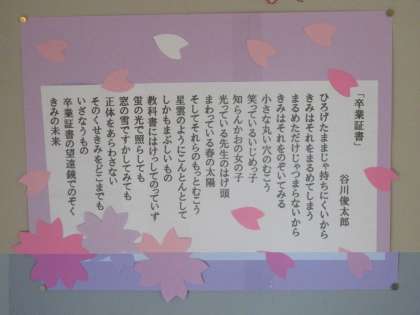 「卒業証書」
谷川俊太郎
ひろげたままじゃ持ちにくいから
きみはそれをまるめてしまう
まるめただけじゃつまらないから
きみはそれをのぞいてみる
小さな丸い穴のむこう
笑っているいじめっ子
知らんかおの女の子
光っている先生のはげ頭
まわっている春の太陽
そしてそれらのもっとむこう
星雲のようにこんとんとして
しかもまぶしいもの
教科書にはけっしてのっていず
蛍の光で照らしても
窓の雪ですかしてみても
正体をあらわさない
そのくせきみをどこまでも
いざなうもの
卒業証書の望遠鏡でのぞく
きみの未来